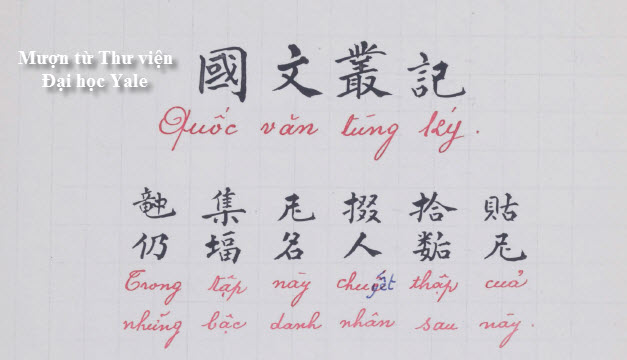 Mượn từ Thư viện
Đại học Yale
國文叢記
Quốc văn tùng ký.
𥪝集尼掇拾貼
仍堛名人𡢐尼
Trong tập này chuyết thập cuả
những bậc danh nhân sau này.